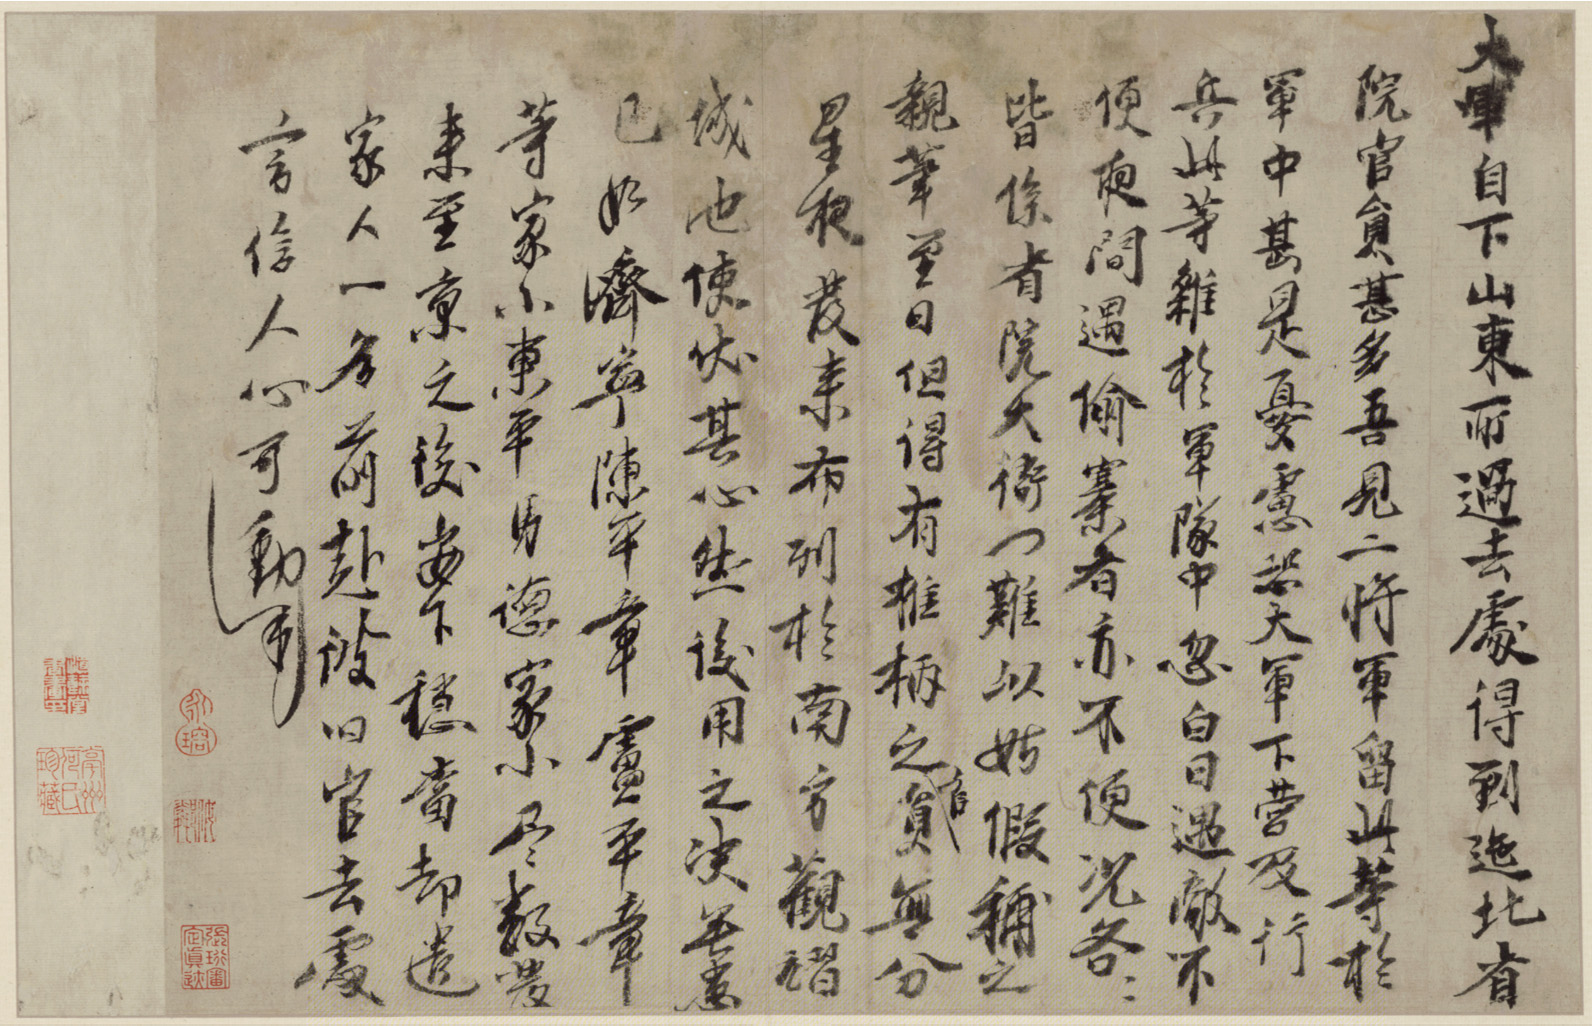 大軍自下山東所過去處得到迤北省
院官員甚多吾見二將軍留此等於
軍中甚是憂慮恐大軍下營及行
兵此等雜於軍隊中忽白日遇敵不
便夜間遇偷寨者亦不便况各〻
皆係省院大衙門難以姑假補之
親筆至日但得有椎柄之官員無分
星夜發来布列於南方觀
城池使伏其心然後用之決無患
已如濟寧陳平章盧平章
等家小東平馬德家小尽數發
来至京之後安下穩當却遣
家人一名前赴彼旧官去處
言信人心可動
永瑢
張珩審定真跡
亭州何氏珍藏